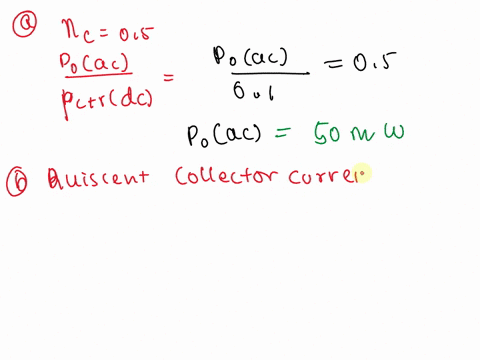 ⓐ ηc = 0.5
Po(ac) / Pc+r(dc) = Po(ac) / 0.1 = 0.5
Po(ac) = 50 m W
ⓑ Quiscent Collector curre